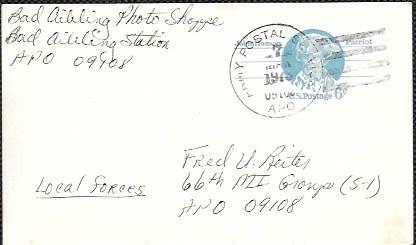 Bad Aibling Photo Shoppe
Bad Aibling Station
APO 09108
ARMY POSTAL
APO
Patriot
U.S. Postage 6¢
Fred U. Reiter
66th MI Group (S-1)
APO 09108
Local Forces